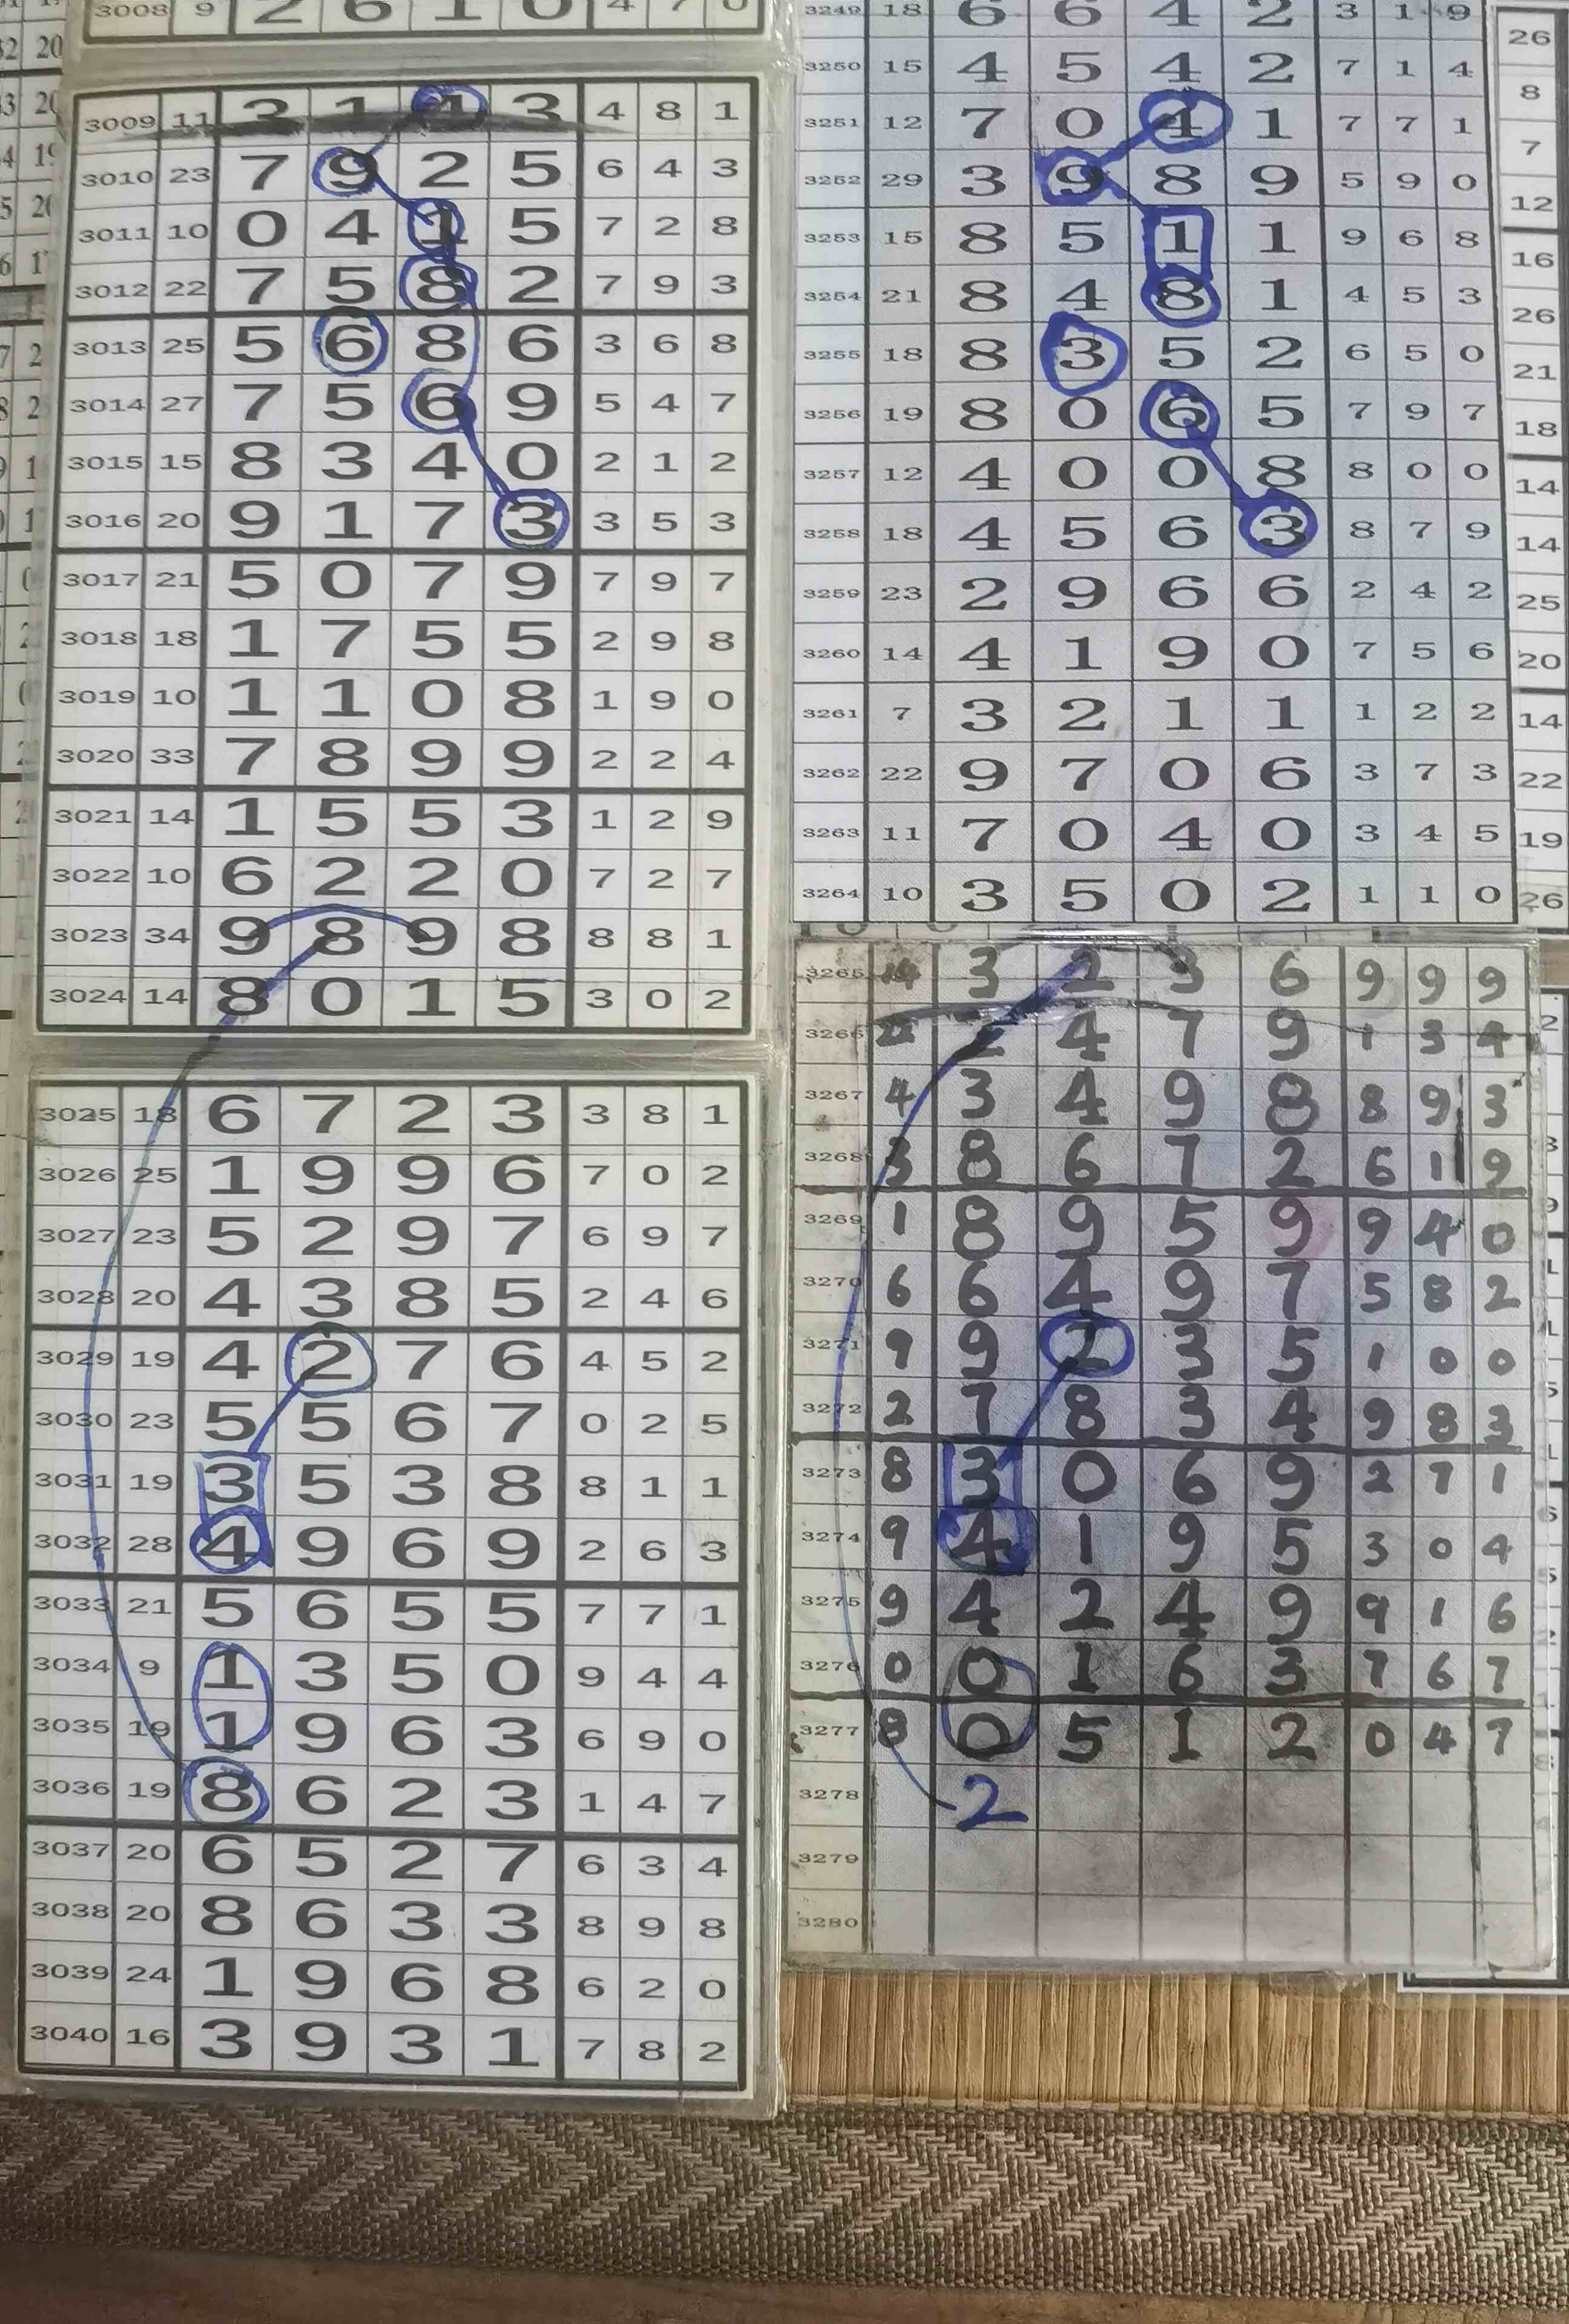 3008 9 2 6 1 0 4 7 0
3009 11 3 1 4 3 4 8 1
3010 23 7 9 2 5 6 4 3
3011 10 0 4 1 5 7 2 8
3012 22 7 5 8 2 7 9 3
3013 25 5 6 8 6 3 6 8
3014 27 7 5 6 9 5 4 7
3015 15 8 3 4 0 2 1 2
3016 20 9 1 7 3 3 5 3
3017 21 5 0 7 9 7 9 7
3018 18 1 7 5 5 2 9 8
3019 10 1 1 0 8 1 9 0
3020 33 7 8 9 9 2 2 4
3021 14 1 5 5 3 1 2 9
3022 10 6 2 2 0 7 2 7
3023 34 9 8 9 8 8 8 1
3024 14 8 0 1 5 3 0 2
3025 18 6 7 2 3 3 8 1
3026 25 1 9 9 6 7 0 2
3027 23 5 2 9 7 6 9 7
3028 20 4 3 8 5 2 4 6
3029 19 4 2 7 6 4 5 2
3030 23 5 5 6 7 0 2 5
3031 19 3 5 3 8 8 1 1
3032 28 4 9 6 9 2 6 3
3033 21 5 6 5 5 7 7 1
3034 9 1 3 5 0 9 4 4
3035 19 1 9 6 3 6 9 0
3036 19 8 6 2 3 1 4 7
3037 20 6 5 2 7 6 3 4
3038 20 8 6 3 3 8 9 8
3039 24 1 9 6 8 6 2 0
3040 16 3 9 3 1 7 8 2
3249 18 6 6 4 2 3 1 9
3250 15 4 5 4 2 7 1 4
3251 12 7 0 4 1 7 7 1
3252 29 3 9 8 9 5 9 0
3253 15 8 5 1 1 9 6 8
3254 21 8 4 8 1 4 5 3
3255 18 8 3 5 2 6 5 0
3256 19 8 0 6 5 7 9 7
3257 12 4 0 0 8 8 0 0
3258 18 4 5 6 3 8 7 9
3259 23 2 9 6 6 2 4 2
3260 14 4 1 9 0 7 5 6
3261 7 3 2 1 1 1 2 2
3262 22 9 7 0 6 3 7 3
3263 11 7 0 4 0 3 4 5
3264 10 3 5 0 2 1 1 0
3265 14 3 2 3 6 9 9 9
3266 22 2 4 7 9 1 3 4
3267 4 3 4 9 8 8 9 3
3268 3 8 6 7 2 6 1 9
3269 1 8 9 5 9 9 4 0
3270 6 6 4 9 7 5 8 2
3271 9 9 2 3 5 1 0 0
3272 2 7 8 3 4 9 8 3
3273 8 3 0 6 9 2 7 1
3274 9 4 1 9 5 3 0 4
3275 9 4 2 4 9 9 1 6
3276 0 0 1 6 3 7 6 7
3277 8 0 5 1 2 0 4 7
3278 2
3279
3280
26
8
7
12
16
26
21
18
14
14
25
20
14
22
19
26